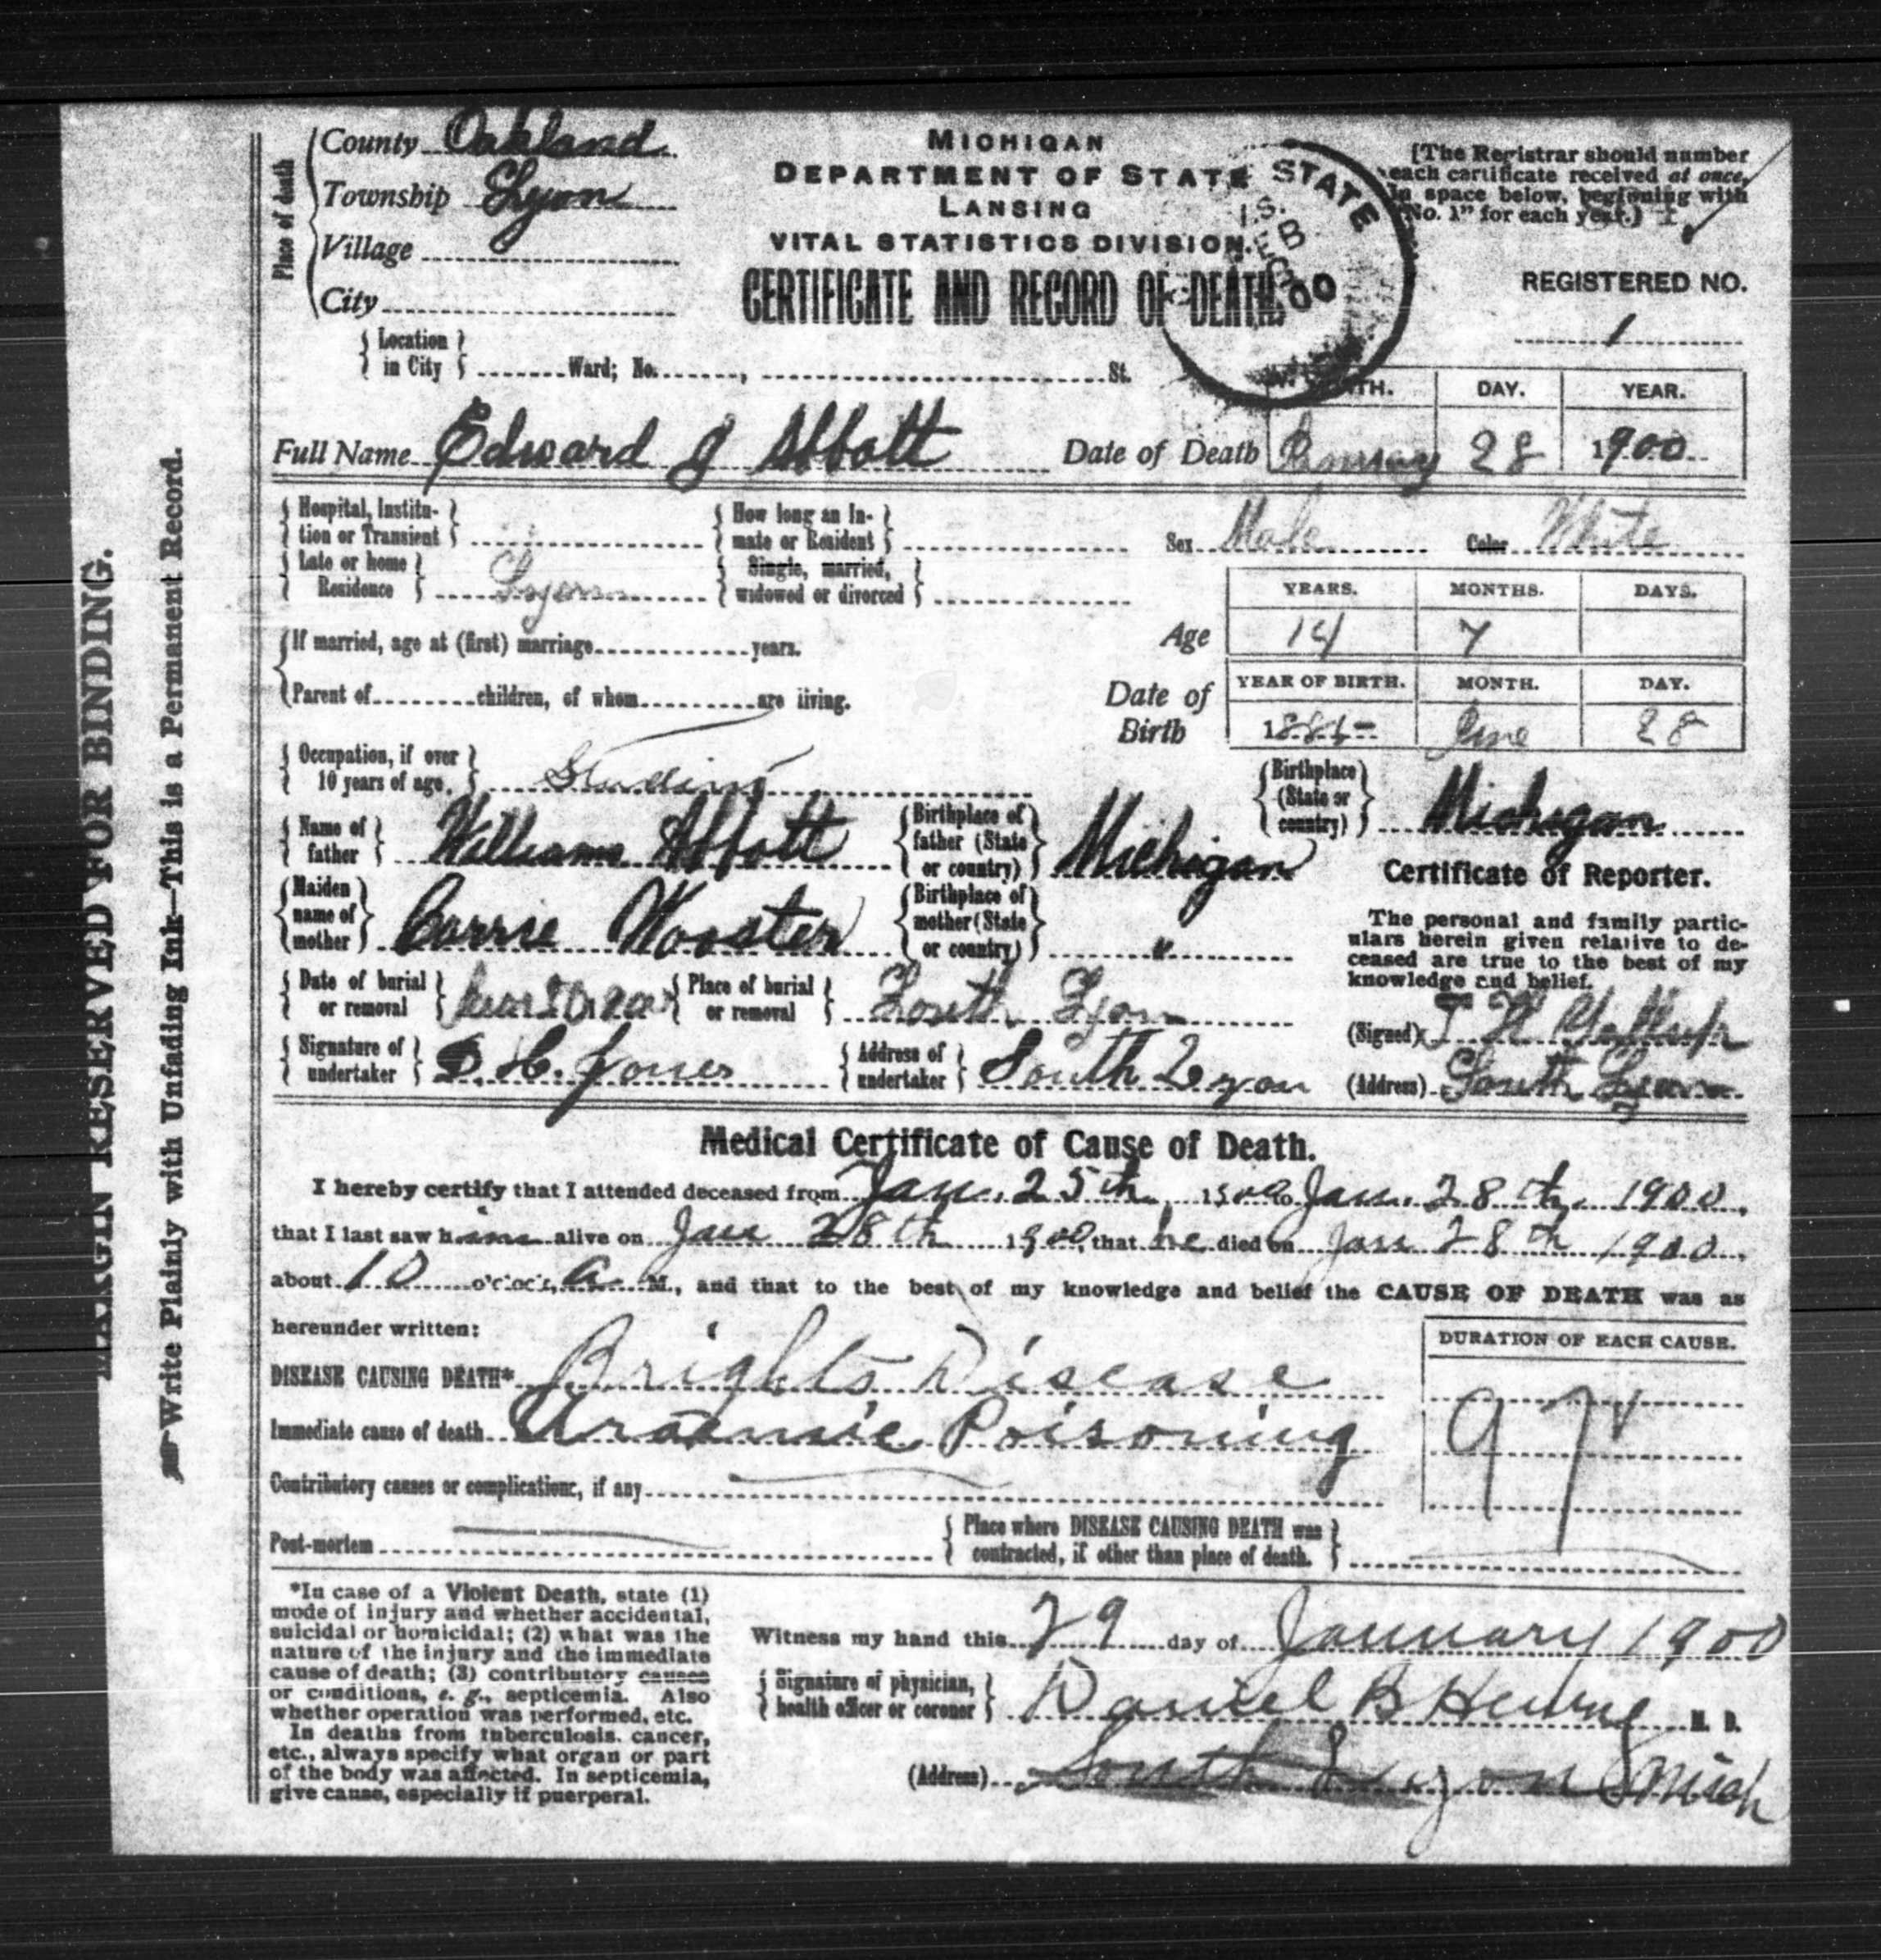 MARGIN RESERVED FOR BINDING.
Write Plainly with Unfading Ink—This is a Permanent Record.
Place of death
County Oakland
Township Lyon
Village
City
MICHIGAN
DEPARTMENT OF STATE
LANSING
VITAL STATISTICS DIVISION.
CERTIFICATE AND RECORD OF DEATH.
STATE
[The Registrar should number
each certificate received at once,
in space below, beginning with
"No. 1" for each year.]
REGISTERED NO.
1
Location in City Ward; No. , St.
Full Name Edward J Abbott Date of Death
MONTH. DAY. YEAR.
28 1900
Hospital, Institution or Transient
How long an Inmate or Resident
Sex Male Color White
Late or home Residence Lyon
Single, married, widowed or divorced
If married, age at (first) marriage years.
Parent of children, of whom are living.
Age
YEARS. MONTHS. DAYS.
14 7
Date of Birth
YEAR OF BIRTH. MONTH. DAY.
1885 June 28
Occupation, if over 10 years of age.
Birthplace (State or country) Michigan
Name of father William Abbott
Birthplace of father (State or country) Michigan
Maiden name of mother Carrie Wooster
Birthplace of mother (State or country) "
Date of burial or removal
Place of burial or removal South Lyon
Signature of undertaker D. H. Jones
Address of undertaker South Lyon
Certificate of Reporter.
The personal and family partic-
ulars herein given relative to de-
ceased are true to the best of my
knowledge and belief.
(Signed)
(Address) South Lyon
Medical Certificate of Cause of Death.
I hereby certify that I attended deceased from Jan. 25th 1900 to Jan. 28th, 1900,
that I last saw him alive on Jan 28th 1900, that he died on Jan 28th 1900,
about 10 o'clock, A. M., and that to the best of my knowledge and belief the CAUSE OF DEATH was as
hereunder written:
DURATION OF EACH CAUSE.
DISEASE CAUSING DEATH* Brights Disease
Immediate cause of death Uraemic Poisoning
97
Contributory causes or complications, if any
Post-mortem
Place where DISEASE CAUSING DEATH was contracted, if other than place of death.
*In case of a Violent Death, state (1)
mode of injury and whether accidental,
suicidal or homicidal; (2) what was the
nature of the injury and the immediate
cause of death; (3) contributory causes
or conditions, e. g., septicemia. Also
whether operation was performed, etc.
In deaths from tuberculosis, cancer,
etc., always specify what organ or part
of the body was affected. In septicemia,
give cause, especially if puerperal.
Witness my hand this 29 day of January 1900
Signature of physician, health officer or coroner Daniel B M. D.
(Address) South Lyon Mich